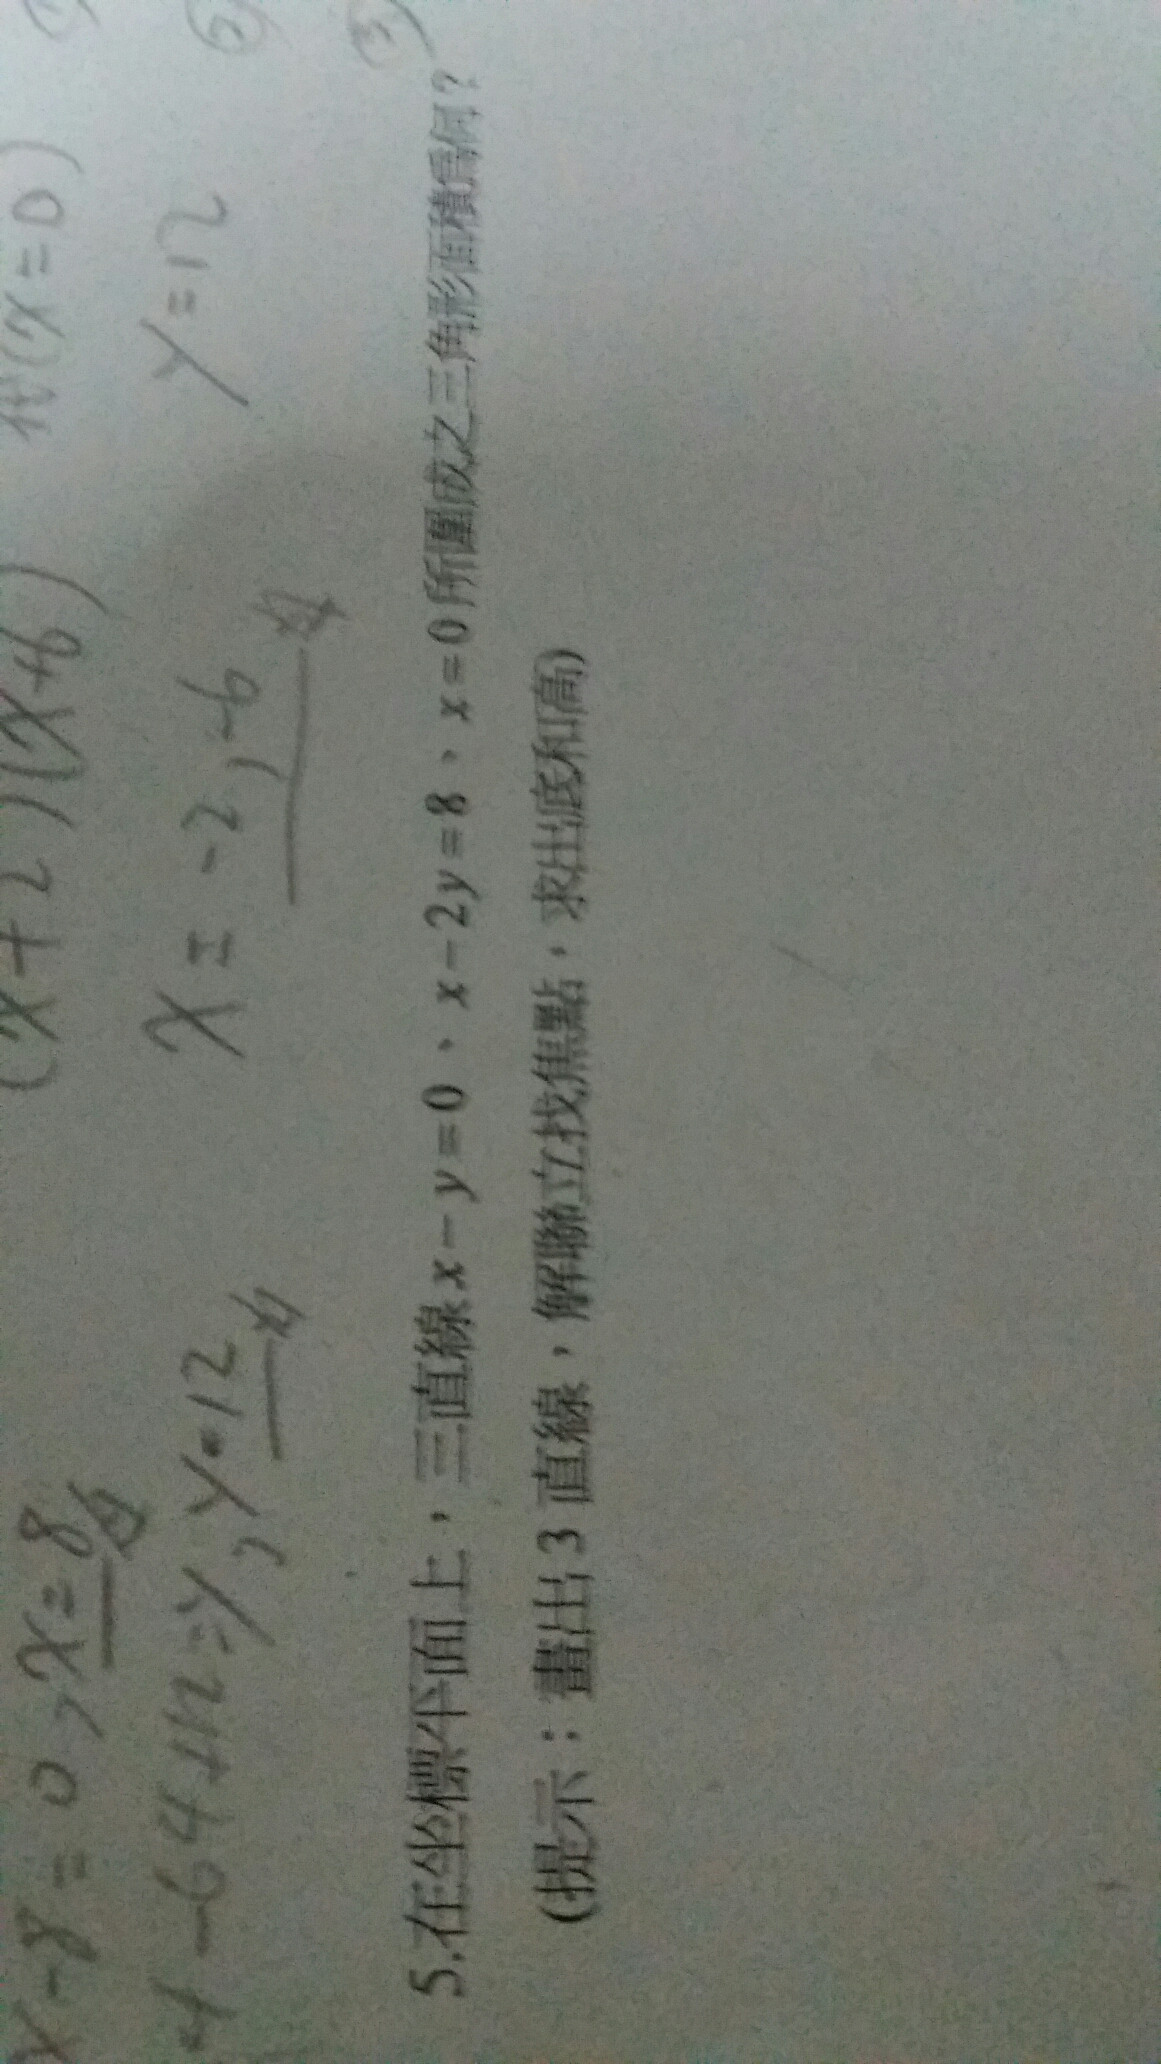 (x+2)(x+6)
代(x=0)
x-8=0, x=8
x=-2,-6
y=12
-64+12=y, y=12
5.在坐標平面上，三直線x-y=0、x-2y=8、x=0所圍成之三角形面積為何?
(提示：畫出3直線，解聯立找焦點，求出底和高)